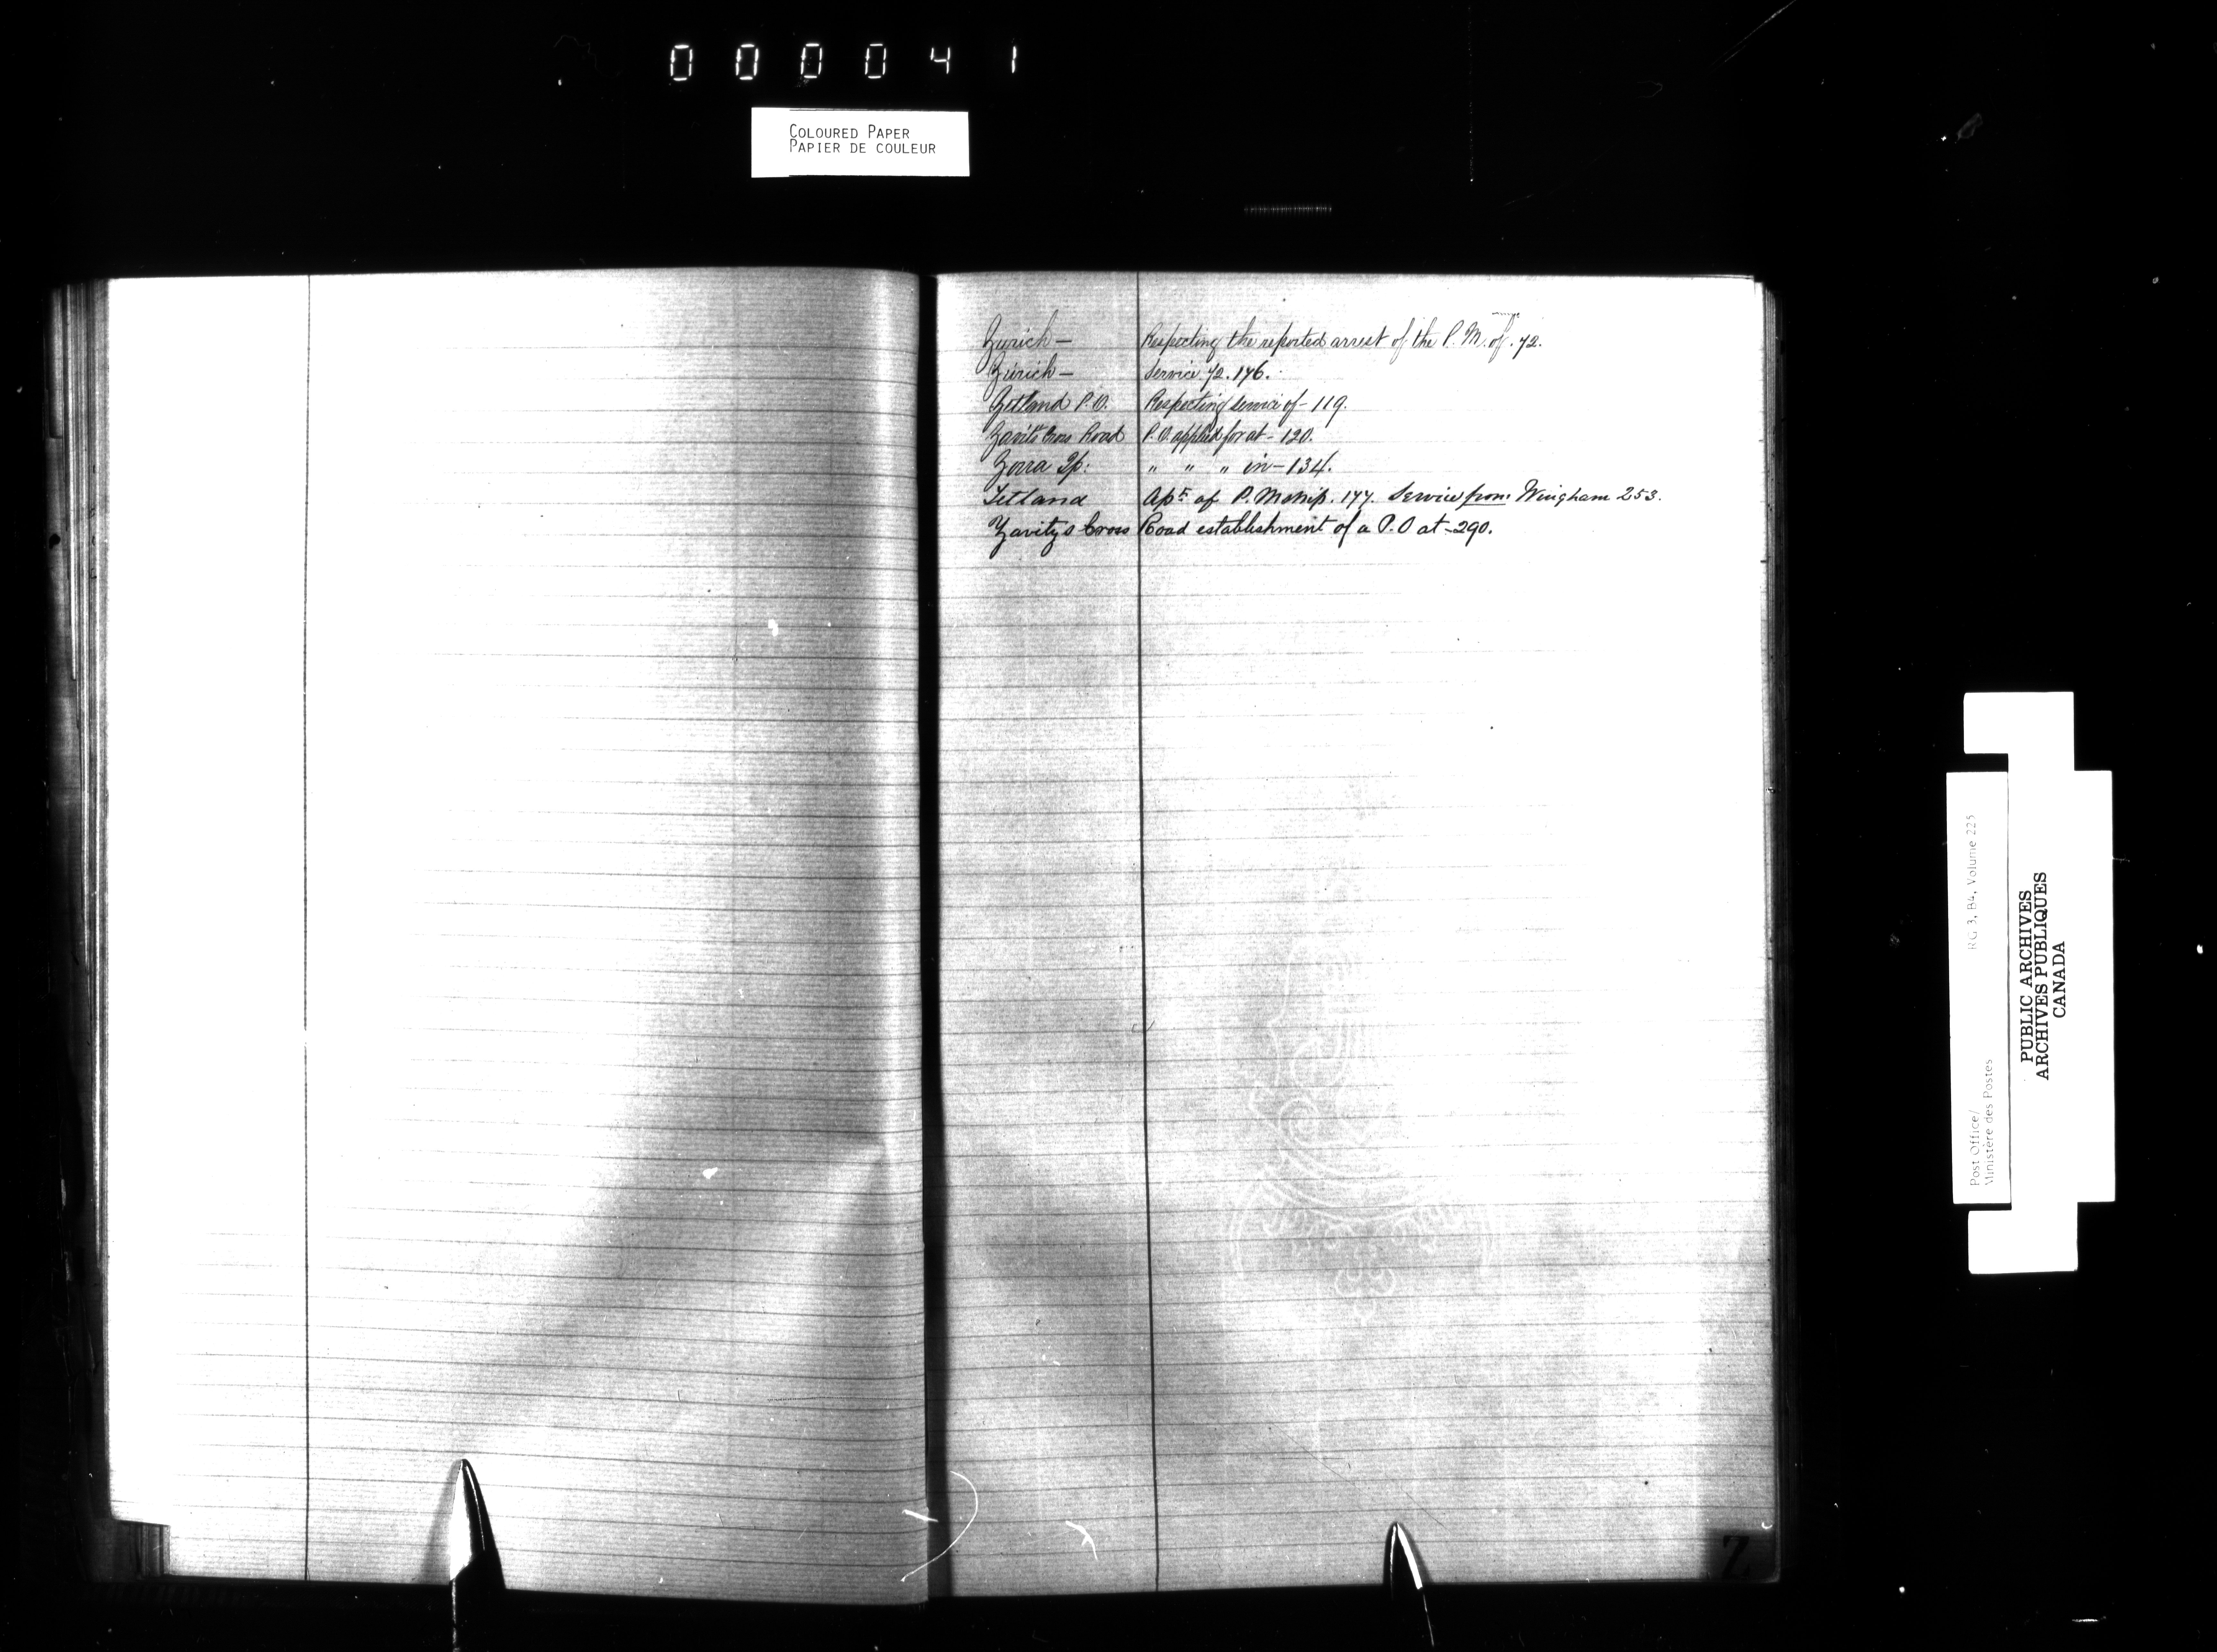 000041
COLOURED PAPER
PAPIER DE COULEUR
Zurich — Respecting the reported arrest of the P. M. of. 72.
Zurich — Service 72. 176.
Zetland P.O. Respecting service of - 119.
Zavitz Cross Road P.O. applied for at - 120.
Zorra Tp: " " " in - 134.
Zetland Apt of P. Mship. 177. Service from Wingham 253.
Zavitz's Cross Road establishment of a P.O at - 290.
Z
Post Office/ RG 3, B4, Volume 225
Ministère des Postes
PUBLIC ARCHIVES
ARCHIVES PUBLIQUES
CANADA